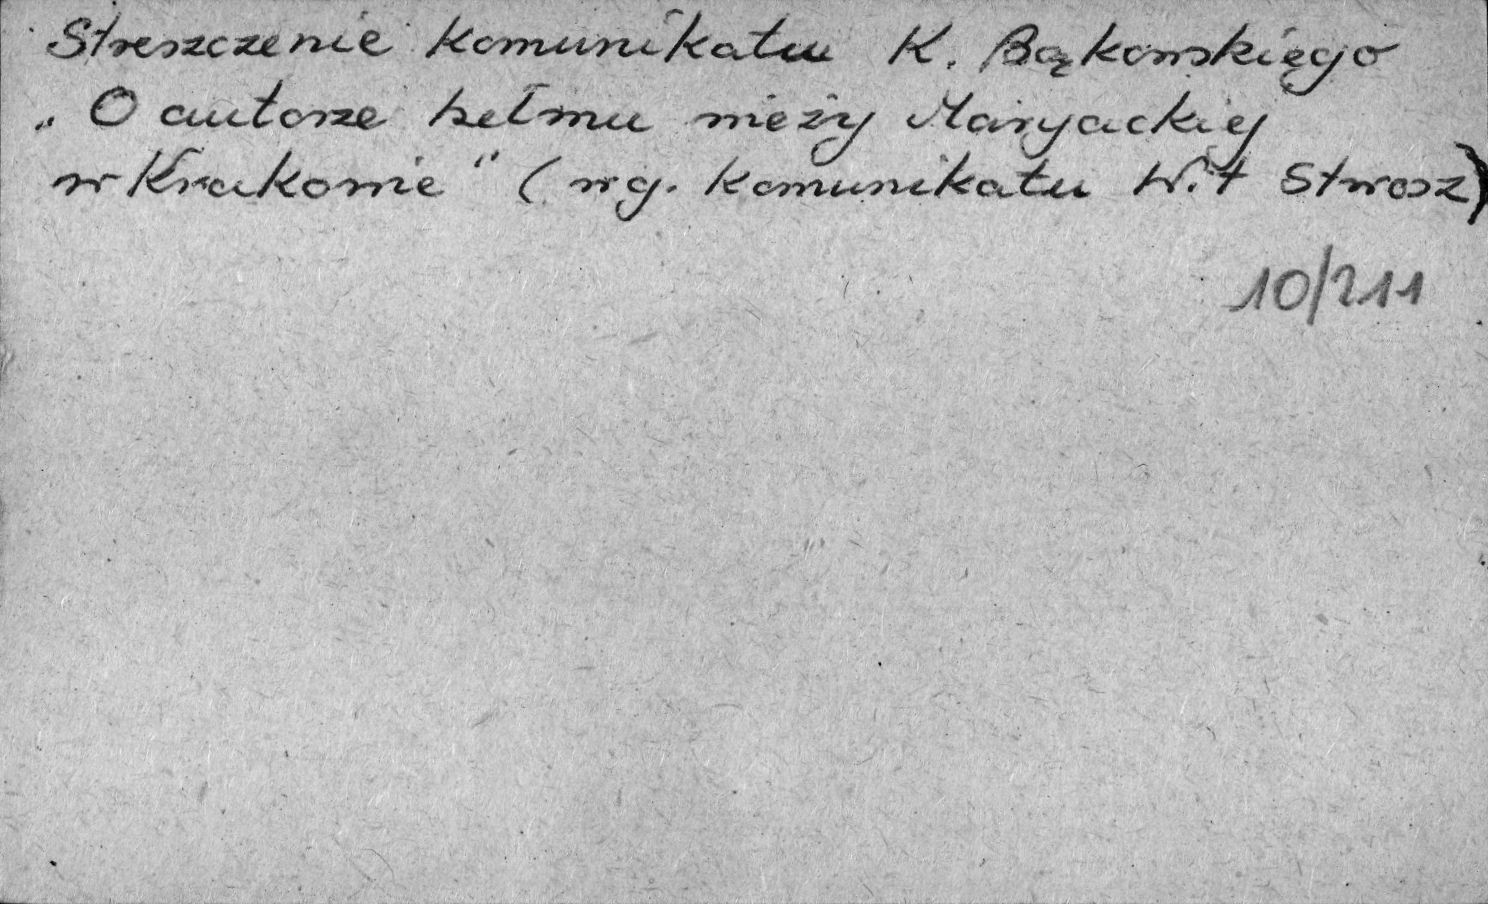 Streszczenie komunikatu K. Bąkowskiego
„O autorze hełmu wieży Maryackiej
w Krakowie" (wg. komunikatu Wit Stwosz)
10/211